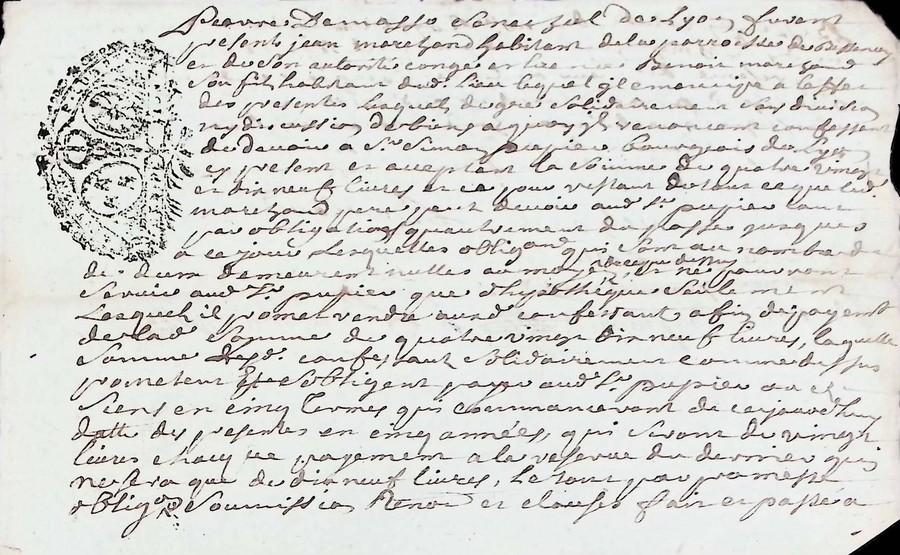 Pierre Damasso senechal de Lyon furent
presents jean marchand habitant de la parroisse de
et de son autorité congé et Benoit marchand
son fils habitant dud. lieu lequel il emancipe a leffet
des presentes Lesquels de gré solidairement sans division
ny discussion de biens a quoy ils renoncent confessent
de devoir a Sr. Simon pupier bourgeois de Lyon
cy present et acceptant la somme de quatre vingt
et dix neuf livres et ce pour restant de tout ce que led.
marchand pere peut devoir aud. Sr. pupier tant
par obligations quautrement du passé jusques
a ce jour Lesquelles obligaons. qui sont au nombre
de deux demeurent nulles au moyen des presentes et ne pouvant
servir aud. Sr. pupier que dhypotheque seulement
Lesquels il promet rendre auxd. confessants a fin de payement
de lad. somme de quatre vingt dix neuf livres, laquelle
somme lesd. confessant solidairement comme dessus
promettent et sobligent payer aud. Sr. pupier ou es
siens en cinq termes qui commanceront de ce jourdhuy
datte des presentes en cinq années, qui seront de vingt
livres chacque payement a la reserve du dernier qui
ne sera que de dix neuf livres, Le tout par promesse
obligaon. soumission Renon. et clauses fait et passé a